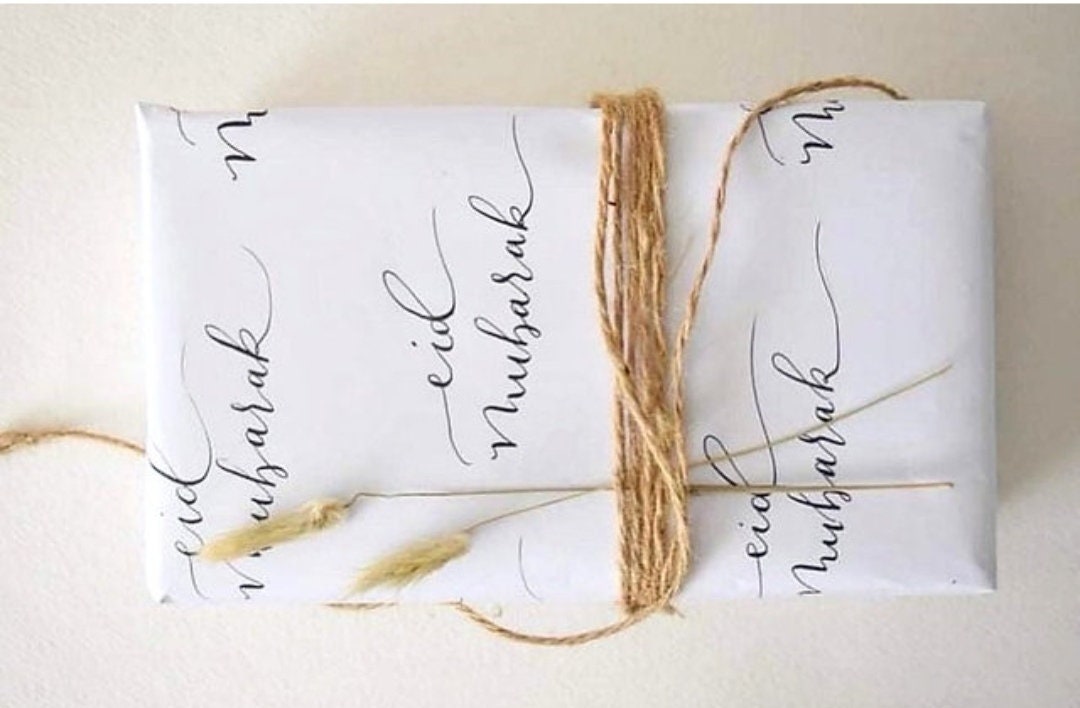 eid
Mubarak
eid
Mubarak
eid
Mubarak